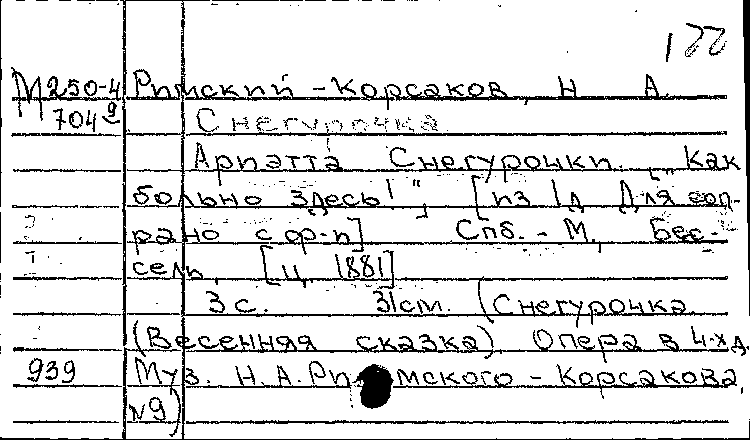 122
М250-4 Римский-Корсаков, Н А.
704⁹ Снегурочка
Ариэтта Снегурочки. „Как
больно здесь!", [из 1д Для соп-
рано с ф-п] Спб. - М., Бес-
сель, [ц. 1881]
3 с. 31см. (Снегурочка
(Весенняя сказка). Опера в 4-х д.
939 Муз. Н.А.Римского-Корсакова,
№9)